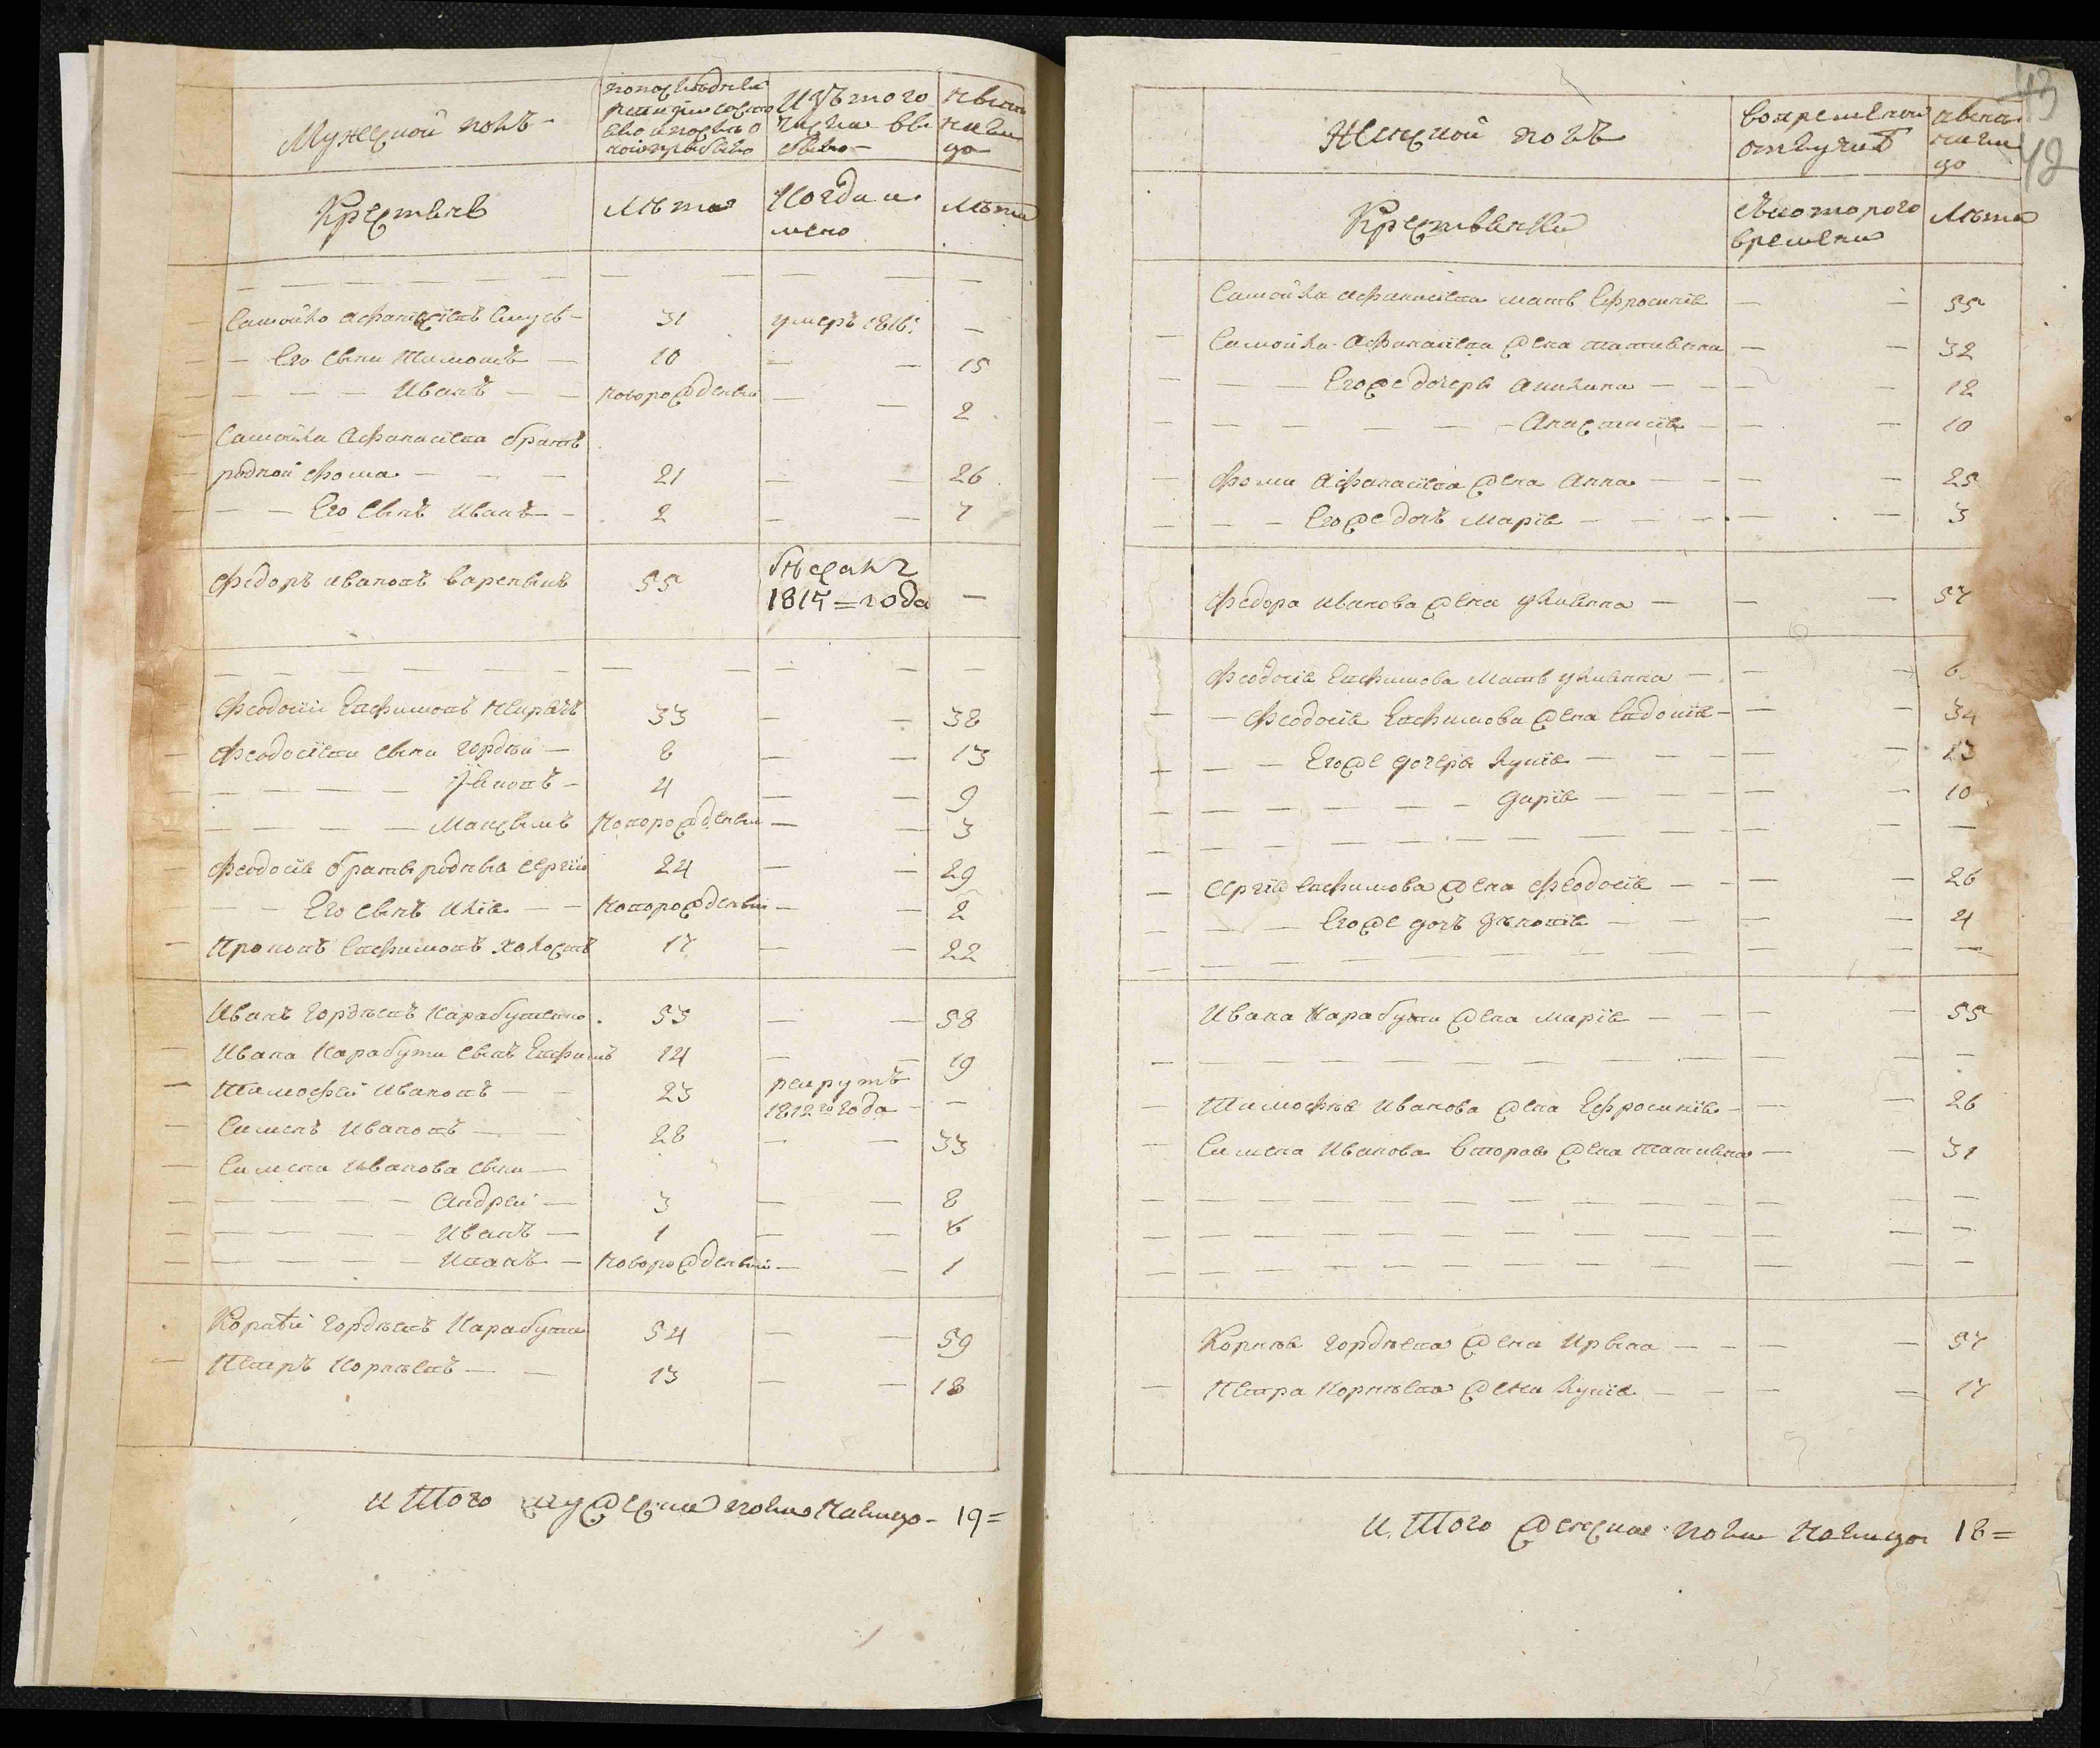 Мужеской полъ
попоследней
ревизии состо
яло и после о
ной прибыло
Изъ того
числа вы
было
Ныне
нали
цо
Крестьяне
Лета
Когда и
мено
Лета
Самойло Афанасіевъ 31 умеръ 1816. —
Его сыни Тимофей 10 — — 15
Иванъ новорожденный — — 2
Самойла Афанасіева братъ
родной Фома 21 — — 26
Его сынъ Иванъ 2 — — 7
Федоръ Ивановъ 55
1815 = года —
Феодосій Евфимовъ 33 — — 38
Феодосіеви сыни Гордѣй 8 — — 13
4 — — 9
Максымъ Новорожденный — — 3
Феодосія братъ родный Сергій 24 — — 29
Его сынъ Илія Новорожденный — — 2
Прокопъ Евфимовъ холостъ 17 — — 22
Иванъ Гордѣевъ 53 — — 58
Ивана Карабути сынъ Евфимъ 14 — — 19
Тимофей Ивановъ 23 рекрутъ
1812го года —
Сименъ Ивановъ 28 — — 33
Симена Иванова сыни —
Андрей 3 — — 8
Иванъ 1 — — 6
Иванъ Новорожденный — — 1
Корнѣй Гордѣевъ Карабута 54 — — 59
Петръ Корнѣевъ 13 — — 18
И Того мужеска пола Налицо - 19 =
43
42
Женской полъ
Вовременной
отлучке
Ныне
нали
цо
Крестьянки
Съкоторого
времени
Лета
Самойла Афанасіева мать Ефросинія — — 55
Самойла Афанасіева жена Татиянна — — 32
Егоже дочери Акилина — — 12
Анастасія — — 10
Фоми Афанасіева жена Анна — — 25
Егоже дочь Марія — — 3
Федора Иванова жена Улиянна — — 57
Феодосія Евфимова Мать Улиянна — —
Феодосія Евфимова жена Евдокія — — 34
Егоже дочери Лукія — — 13
Дарія — — 10
Сергія Евфимова жена Феодосія — — 26
Егоже дочь — — 4
Ивана Карабути жена Марія — — 55
Тимофѣя Иванова жена Ефросинія — — 26
Симена Иванова вторая жена Татияна — — 31
Корнѣя Гордѣева жена Ирына — — 57
Петра Корнѣева жена Лукія — — 17
И Того женска пола Налицо 18 =